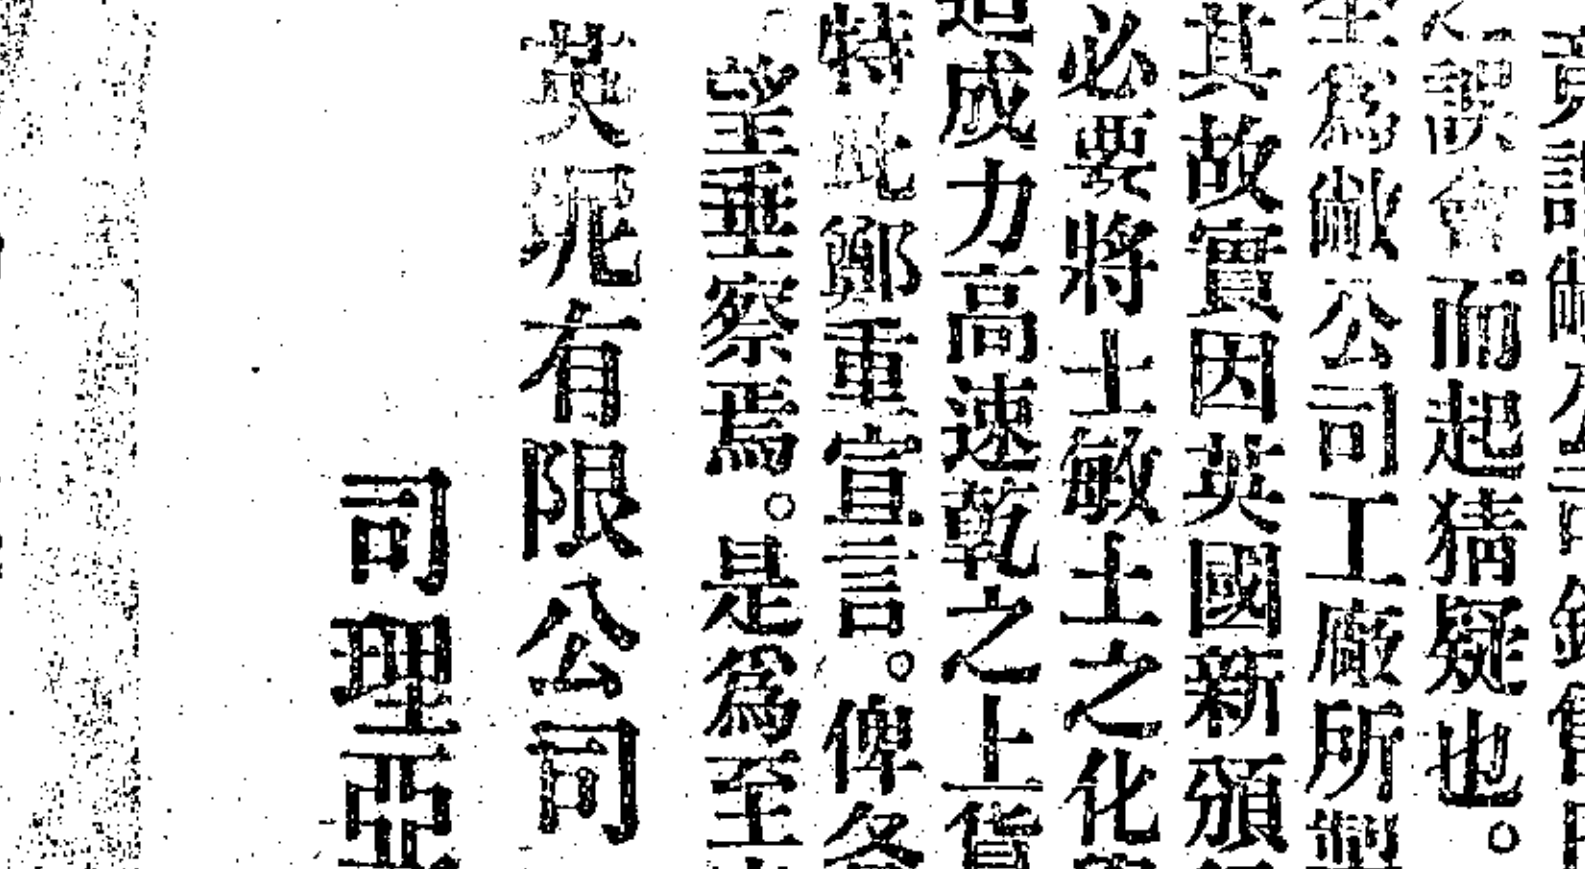 敝公司
之誤會而起猜疑也。
為敝公司工廠所製
其故實因英國新頒
必要將士敏土之化
造成力高速乾之上貨
特此鄭重宣言。俾各
望垂察焉。是為至
英坭有限公司
司理亞